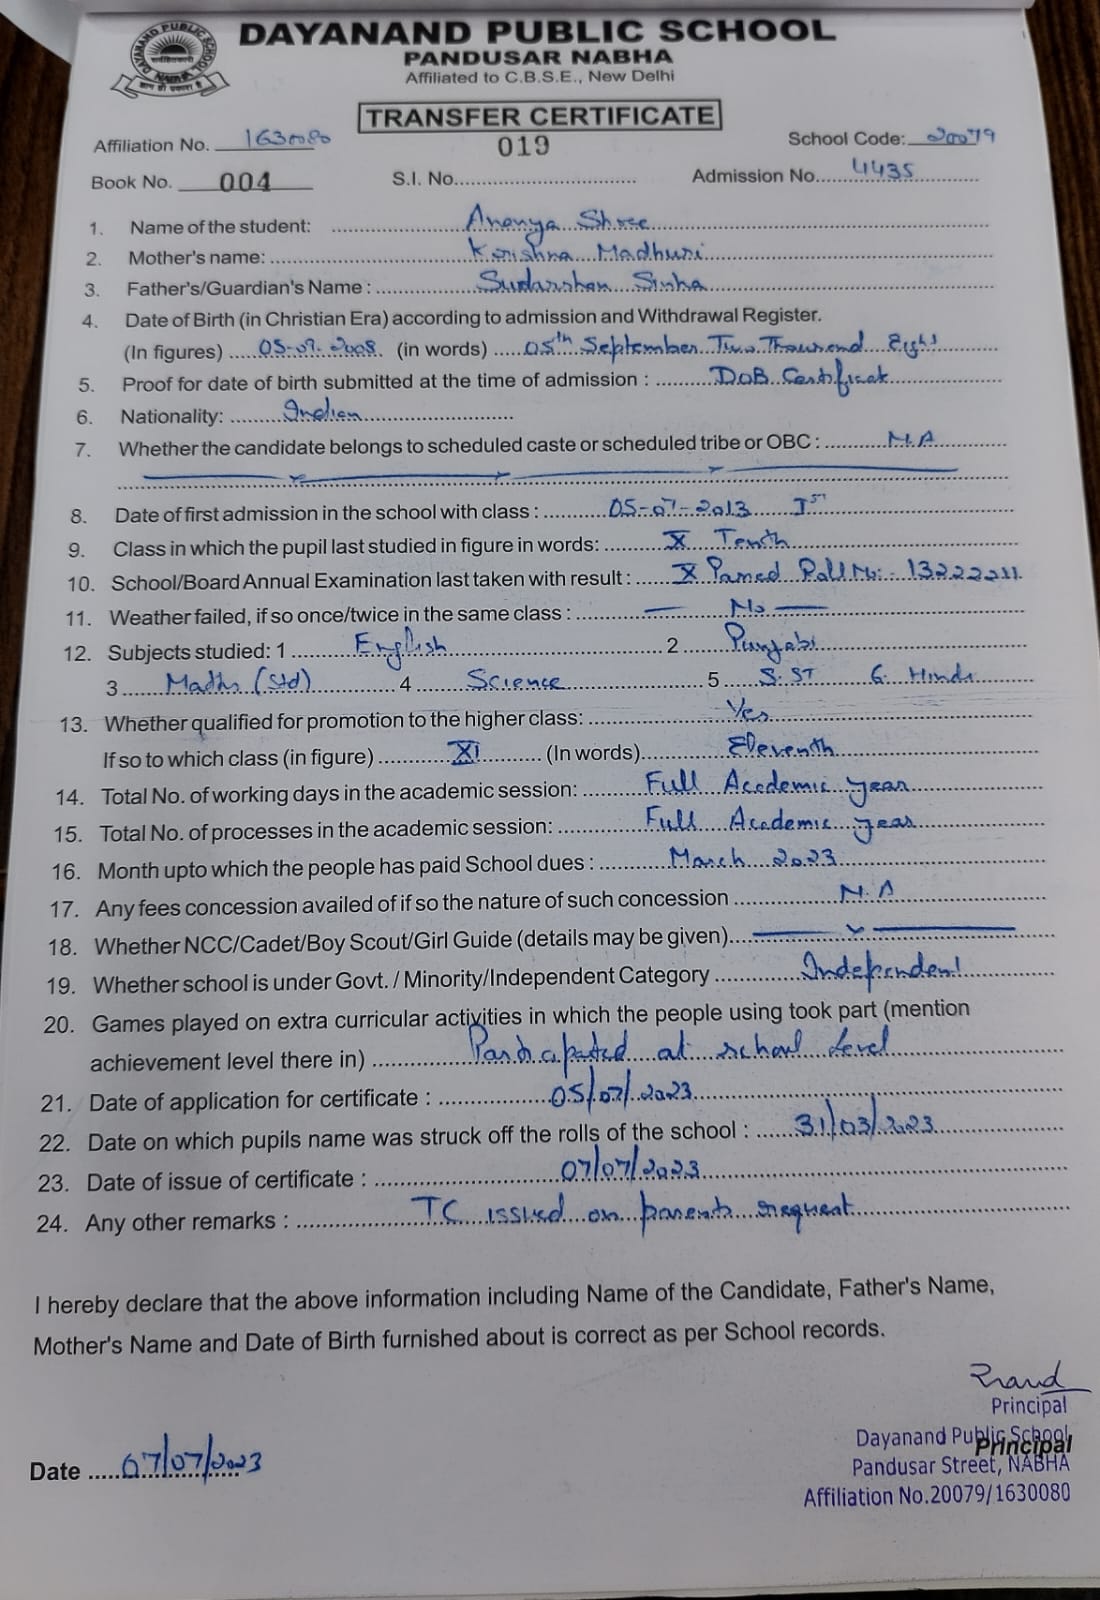 DAYANAND PUBLIC SCHOOL
PANDUSAR NABHA
Affiliated to C.B.S.E., New Delhi
TRANSFER CERTIFICATE
Affiliation No. 1630080 019 School Code: 20079
Book No. 004 S.I. No. Admission No. 4435
1. Name of the student: Ananya Shree
2. Mother's name: Krishna Madhuri
3. Father's/Guardian's Name : Sudarshan Sinha
4. Date of Birth (in Christian Era) according to admission and Withdrawal Register.
(In figures) 05-09-2008 (in words) 05th September Two Thousand Eight
5. Proof for date of birth submitted at the time of admission : DOB Certificate
6. Nationality: Indian
7. Whether the candidate belongs to scheduled caste or scheduled tribe or OBC : N.A
8. Date of first admission in the school with class : 05-07-2013 Ist
9. Class in which the pupil last studied in figure in words: X Tenth
10. School/Board Annual Examination last taken with result : X Passed Roll No:- 13222211
11. Weather failed, if so once/twice in the same class : No
12. Subjects studied: 1 English 2 Punjabi
3 Maths (Std) 4 Science 5 S.ST 6. Hindi
13. Whether qualified for promotion to the higher class: Yes
If so to which class (in figure) XI (In words) Eleventh
14. Total No. of working days in the academic session: Full Academic year
15. Total No. of processes in the academic session: Full Academic year
16. Month upto which the people has paid School dues : March 2023
17. Any fees concession availed of if so the nature of such concession N.A
18. Whether NCC/Cadet/Boy Scout/Girl Guide (details may be given)
19. Whether school is under Govt. / Minority/Independent Category Independent
20. Games played on extra curricular activities in which the people using took part (mention
achievement level there in) Participated at school level
21. Date of application for certificate : 05/07/2023
22. Date on which pupils name was struck off the rolls of the school : 31/03/2023
23. Date of issue of certificate : 07/07/2023
24. Any other remarks : TC issued on parents request
I hereby declare that the above information including Name of the Candidate, Father's Name,
Mother's Name and Date of Birth furnished about is correct as per School records.
Principal
Dayanand Public School
Principal
Pandusar Street, NABHA
Affiliation No.20079/1630080
Date 07/07/2023